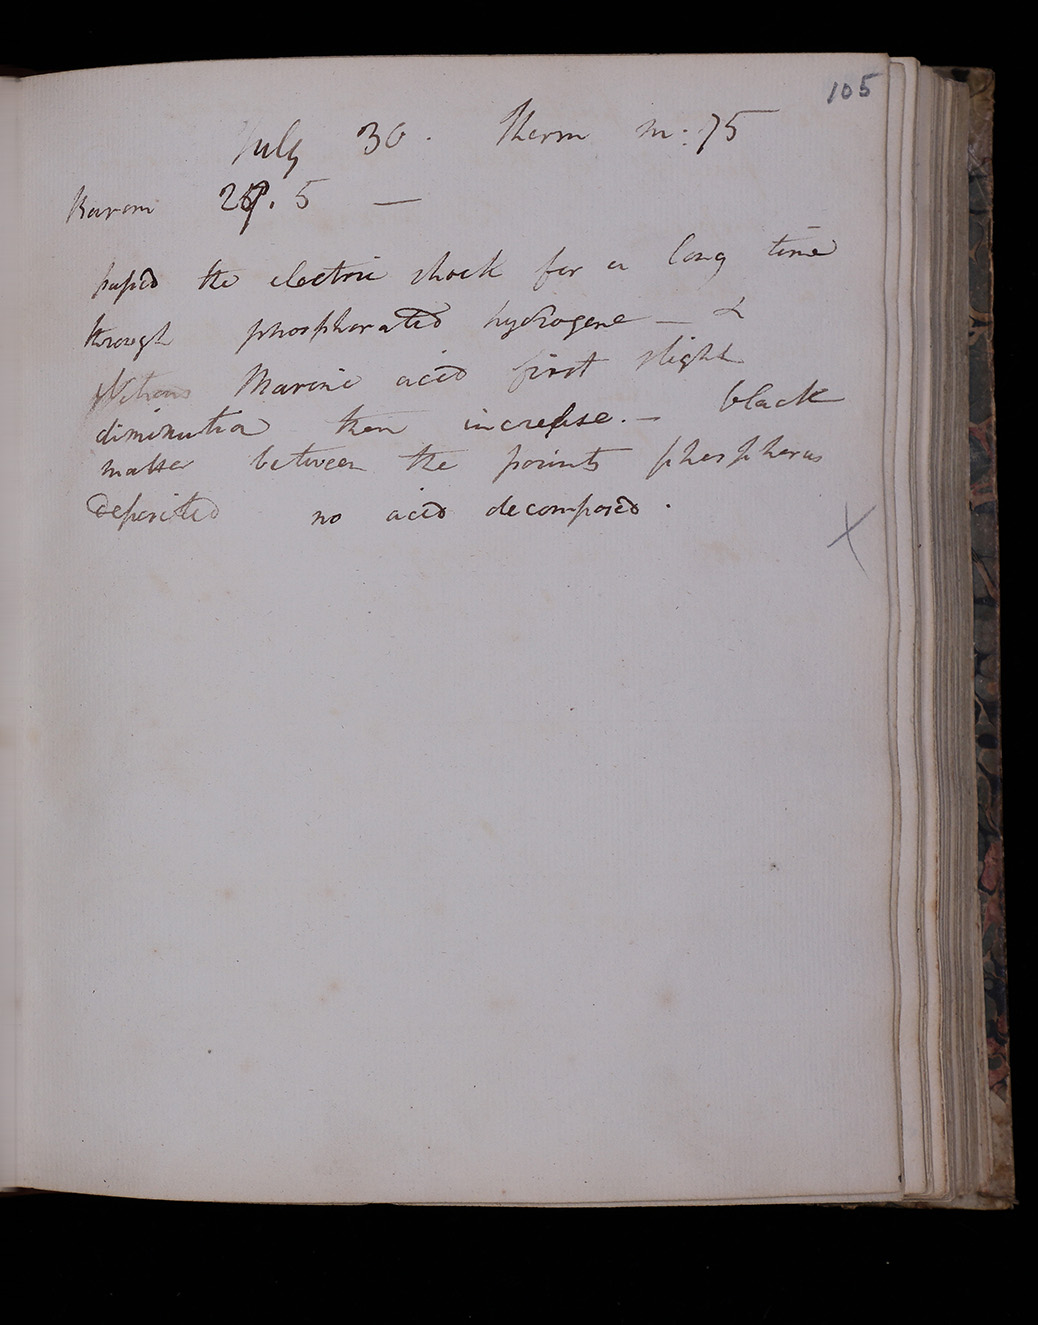 105
July 30. Therm m: 75
Barom 29.5 —
passed the electric shock for a long time
through phosphorated hydrogene — &
Marine acid first slight
diminution then increase. — black
matter between the points phosphorus
deposited no acid decomposed.